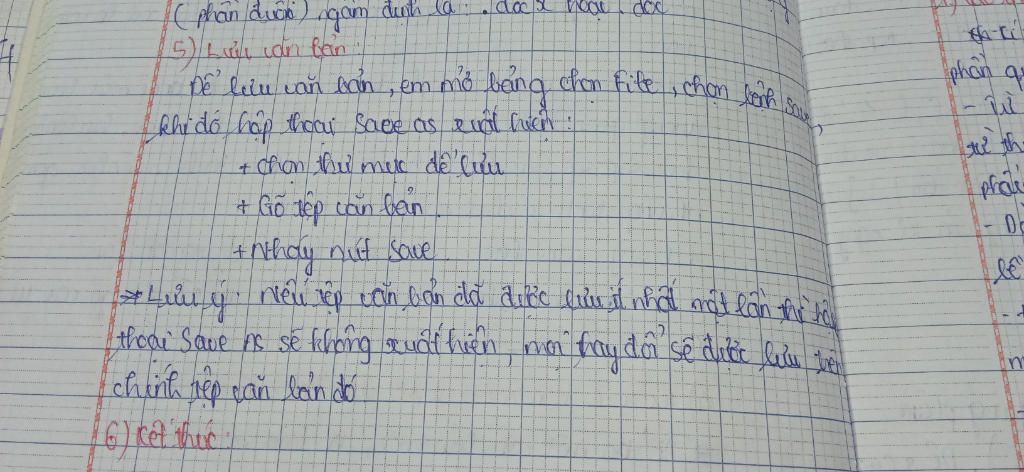 (phần đuôi) ngầm định là .docx hoặc .doc
5) Lưu văn bản:
Để lưu văn bản, em mở bảng chọn File, chọn lệnh Save,
khi đó hộp thoại Save as xuất hiện:
+ chọn thư mục để lưu
+ Gõ tệp văn bản
+ Nháy nút Save
* Lưu ý: Nếu tệp văn bản đã được lưu ít nhất một lần thì hộp
thoại Save As sẽ không xuất hiện, mọi thay đổi sẽ được lưu trên
chính tệp văn bản đó
6) Kết thúc:
phần
- Từ